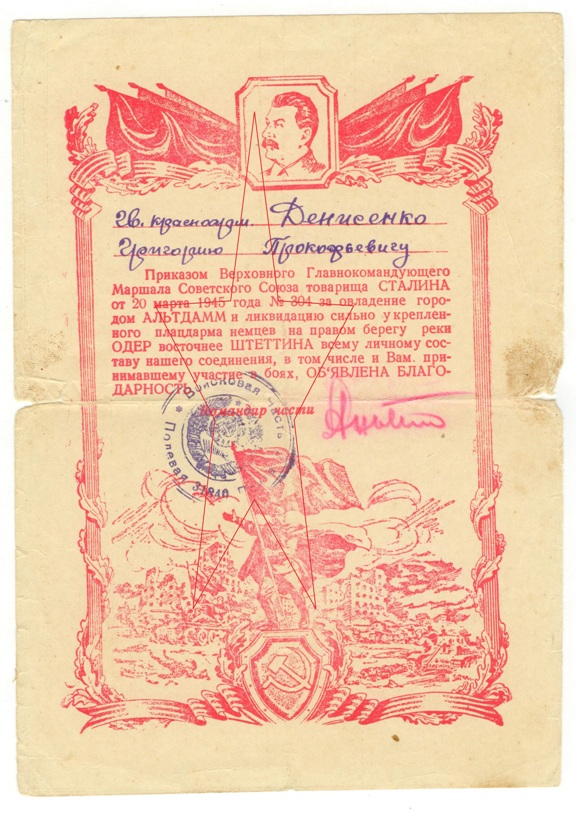 гв. красноарм. Денисенко
Григорию Прокофьевичу
Приказом Верховного Главнокомандующего
Маршала Советского Союза товарища СТАЛИНА
от 20 марта 1945 года № 304 за овладение горо-
дом АЛЬТДАММ и ликвидацию сильно укреплен-
ного плацдарма немцев на правом берегу реки
ОДЕР восточнее ШТЕТТИНА всему личному сос-
таву нашего соединения, в том числе и Вам. при-
нимавшему участие в боях, ОБ'ЯВЛЕНА БЛАГО-
ДАРНОСТЬ
Командир части
Войсковая часть
Полевая
31840